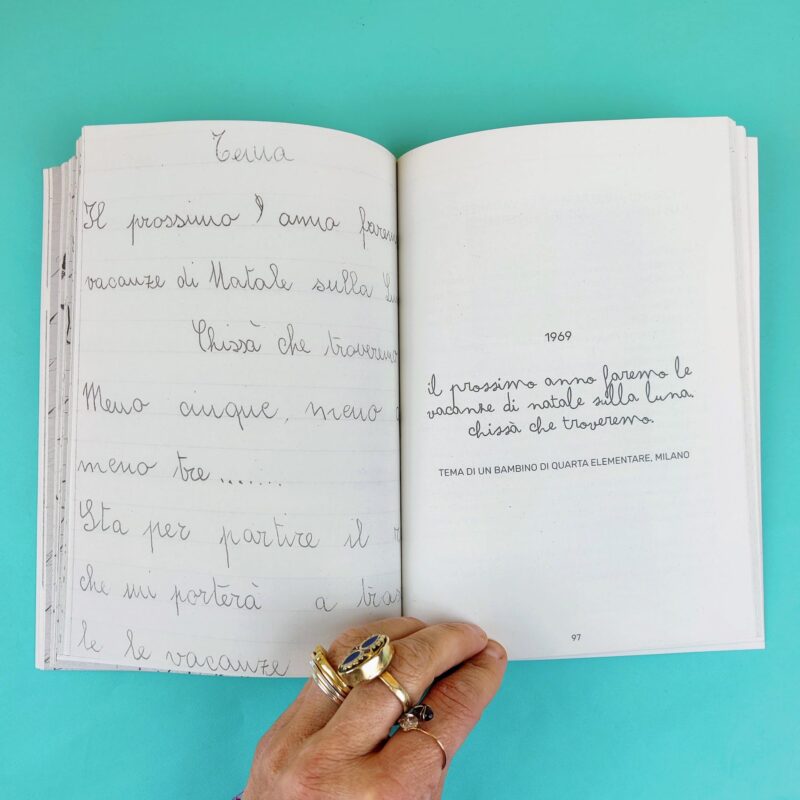 Tema
Il prossimo anno
vacanze di Natale sulla
Chissà che troveremo
Meno cinque, meno
meno tre.......
Sta per partire il
che mi porterà a
le le vacanze
1969
il prossimo anno faremo le
vacanze di natale sulla luna.
chissà che troveremo.
TEMA DI UN BAMBINO DI QUARTA ELEMENTARE, MILANO
97